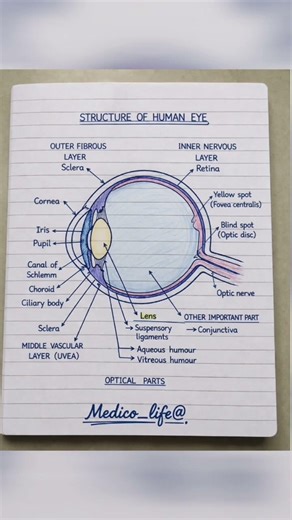 STRUCTURE OF HUMAN EYE
OUTER FIBROUS
LAYER
Sclera
INNER NERVOUS
LAYER
Retina
Cornea
Yellow spot
(Fovea centralis)
Iris
Pupil
Blind spot
(Optic disc)
Canal of
Schlemm
Choroid
Ciliary body
Optic nerve
Sclera
MIDDLE VASCULAR
LAYER (UVEA)
Lens
Suspensory
ligaments
Aqueous humour
Vitreous humour
OTHER IMPORTANT PART
Conjunctiva
OPTICAL PARTS
Medico_life@